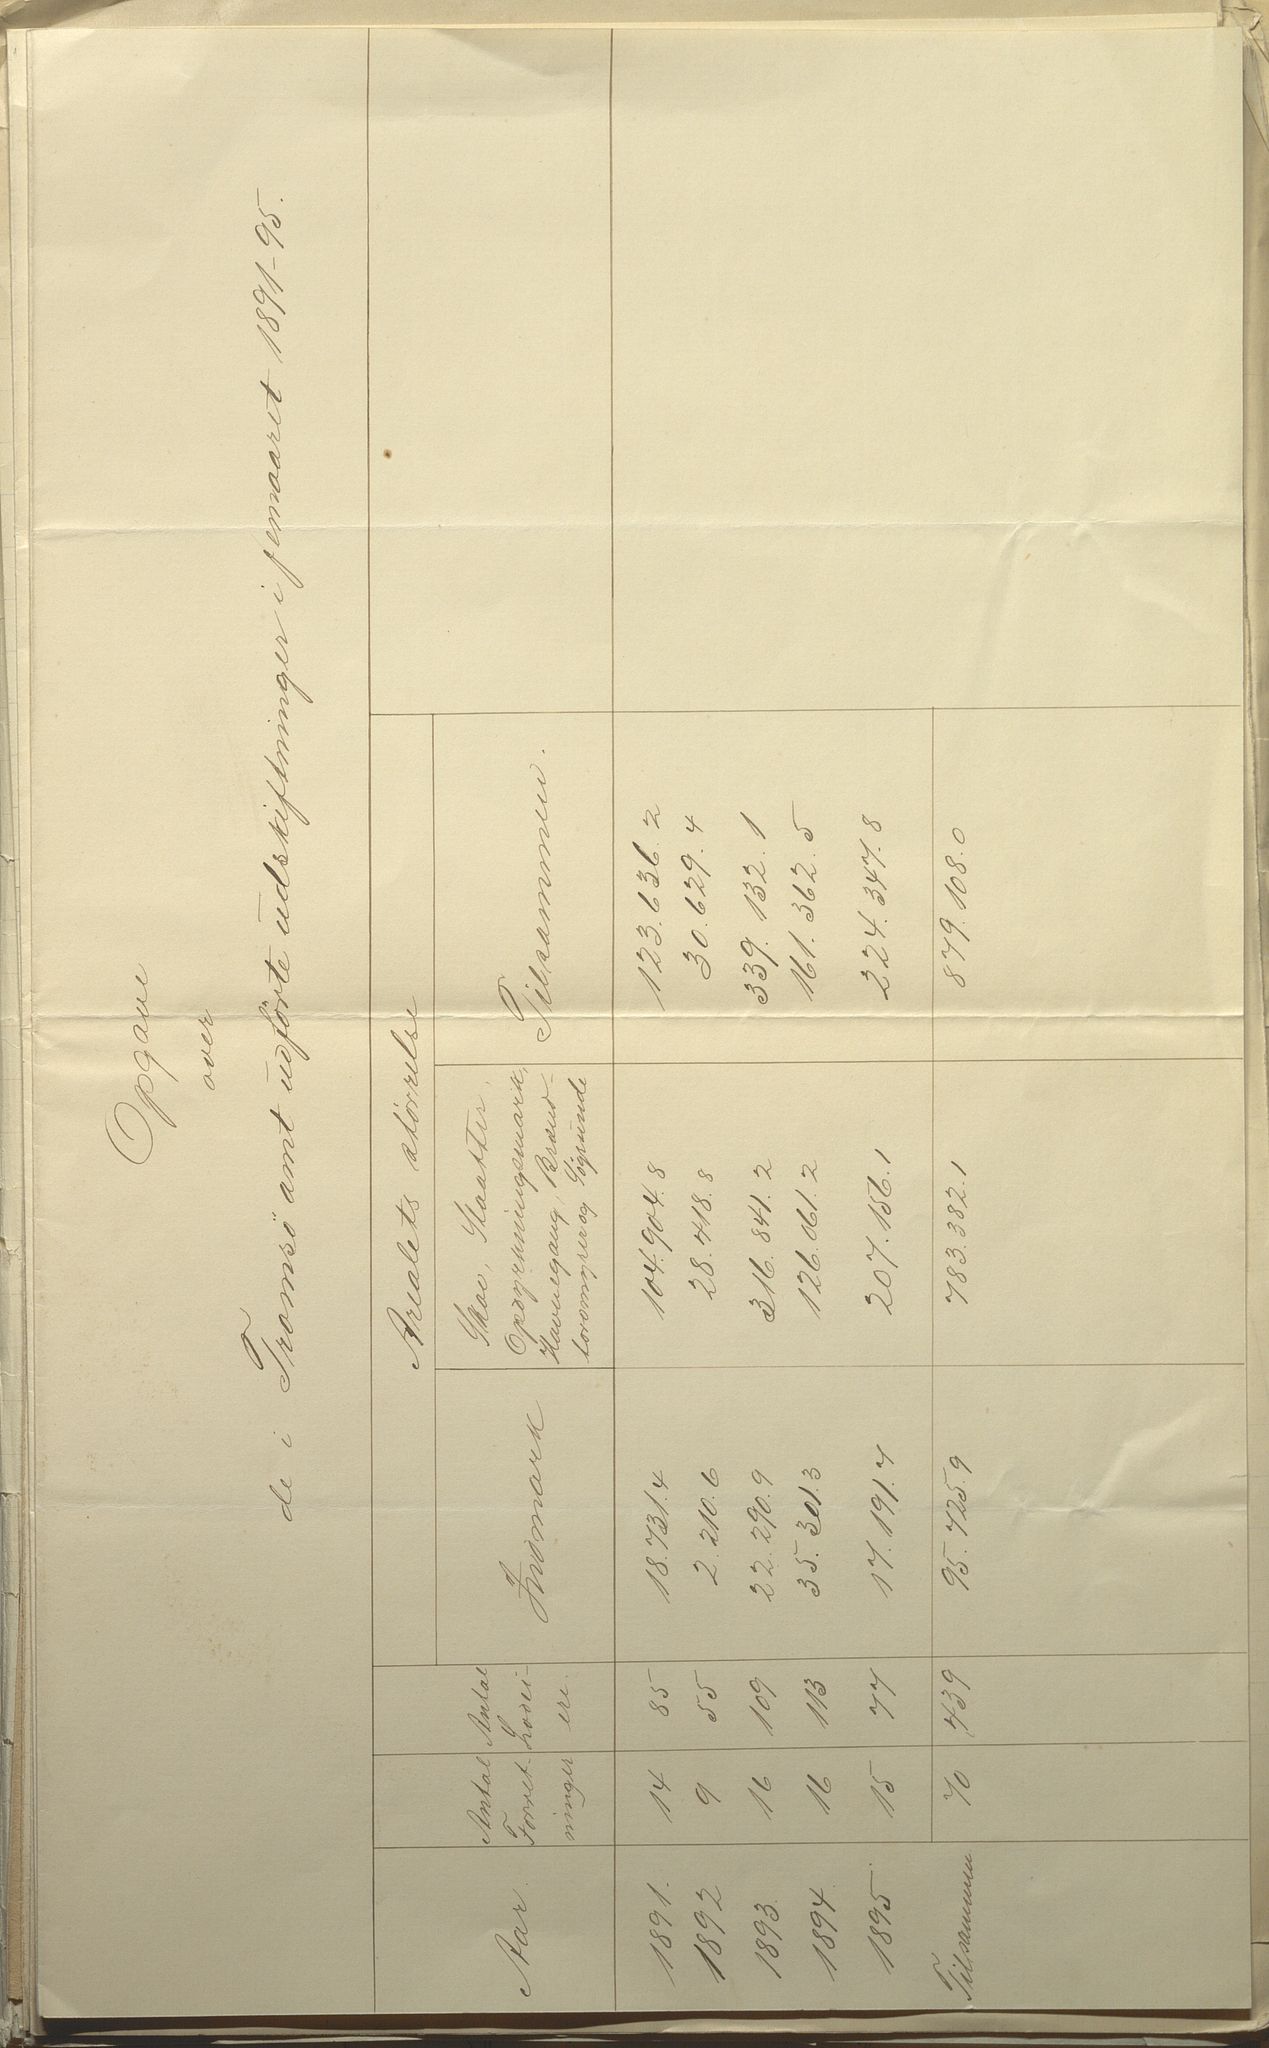 Opgave
over
de i Tromsö amt udförte udskiftninger i femaaret 1891-95.
Arealets störrelse
Aar.
Antal Forret- ninger
Antal Lodei- ere.
Indmark
Skov, Slaatter, Opdyrkningsmark, Havnegang, Brænd- torvmyrer og
Tilsammen.
1891. 14 85 18.731.4 104.904.8 123.636.2
1892 9 55 2.210.6 28.418.8 30.629.4
1893. 16 109 22.290.9 316.841.2 339.132.1
1894. 16 113 35.301.3 126.061.2 161.362.5
1895 15 77 17.191.7 207.156.1 224.347.8
Tilsammen 70 439 95.725.9 783.382.1 879.108.0